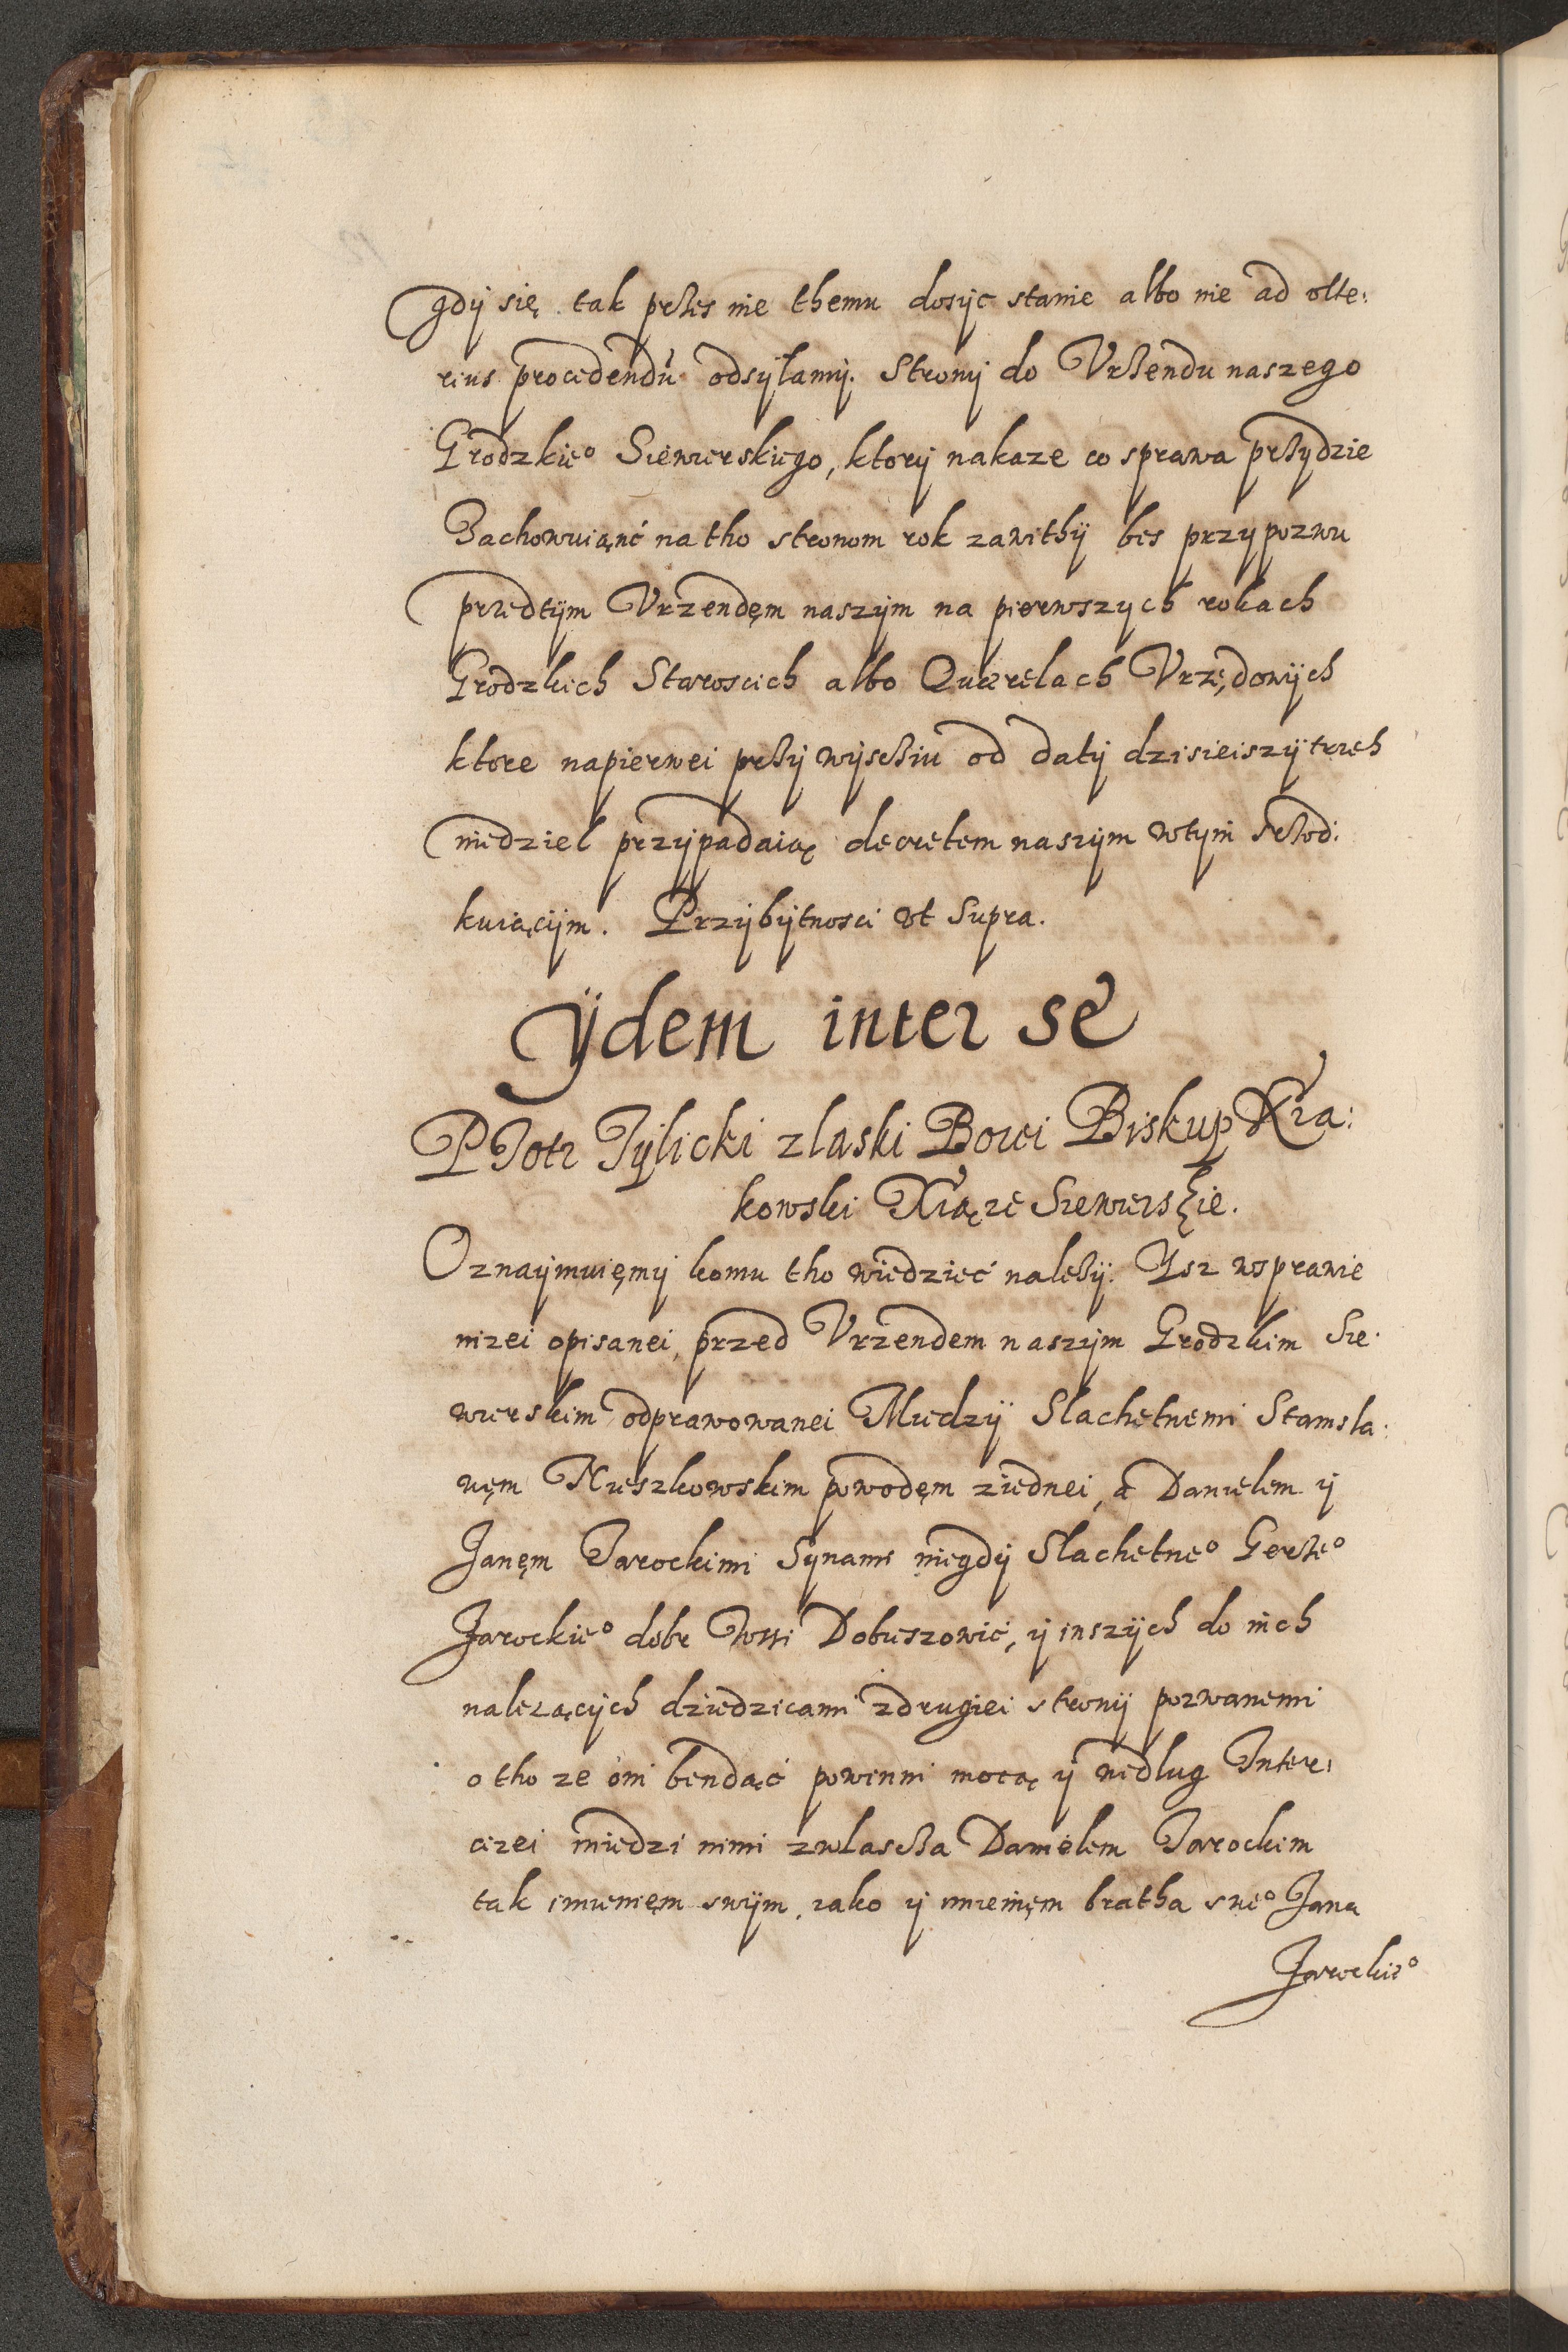 gdÿ się tak przes nie themu dosÿc stanie albo nie ad olte:
rius procedendũ odsÿlamÿ. Stronÿ do Vrzendu naszego
Grodzkie° Siewierskiego, ktorÿ nakaze co sprawa przydzie
Zachowuiąnć na tho stronom rok zawithÿ bes przypozwu
przedtÿm Vrzendęm naszÿm na pierwszych rokach
Grodzkich Staroscich albo Querelach Vrzędowÿch
ktore napierwei przÿ wÿscziu od datÿ dzisieiszÿ trzech
niedziel przÿpadaiąc decretem naszÿm wtÿm srzod:
kuiącÿm. Przÿbÿtnosci vt supra.
Ÿdem inter se
PJotr Tÿlicki z laski Bozei Biskup Kra:
kowski Xiąze Siewierskie.
Oznaÿmuięmÿ komu tho wiedzieć nalezÿ. Ysz wsprawie
nizei opisanei, przed Vrzendem naszÿm Grodzkim Sie:
wierskim odprawowanei Miedzÿ Slachetnemi Stanisla:
węm Mieszkowskim powodęm ziednei, a Danielem ÿ
Janęm Jarockimi Sÿnami niegdÿ Slachetne° Gerze°
Jarockie° dobr Wsi Dobieszowić, ÿ inszÿch do nich
nalezącÿch dziedzicami zdrugiei stronÿ pozwanemi
o tho ze oni bendąć powinni mocą ÿ wedlug Inter:
cizei miedzi nimi zwlascza Danielem Jarockim
tak imienięm swÿm, iako ÿ imienięm bratha swe° Jana
Jarockie°